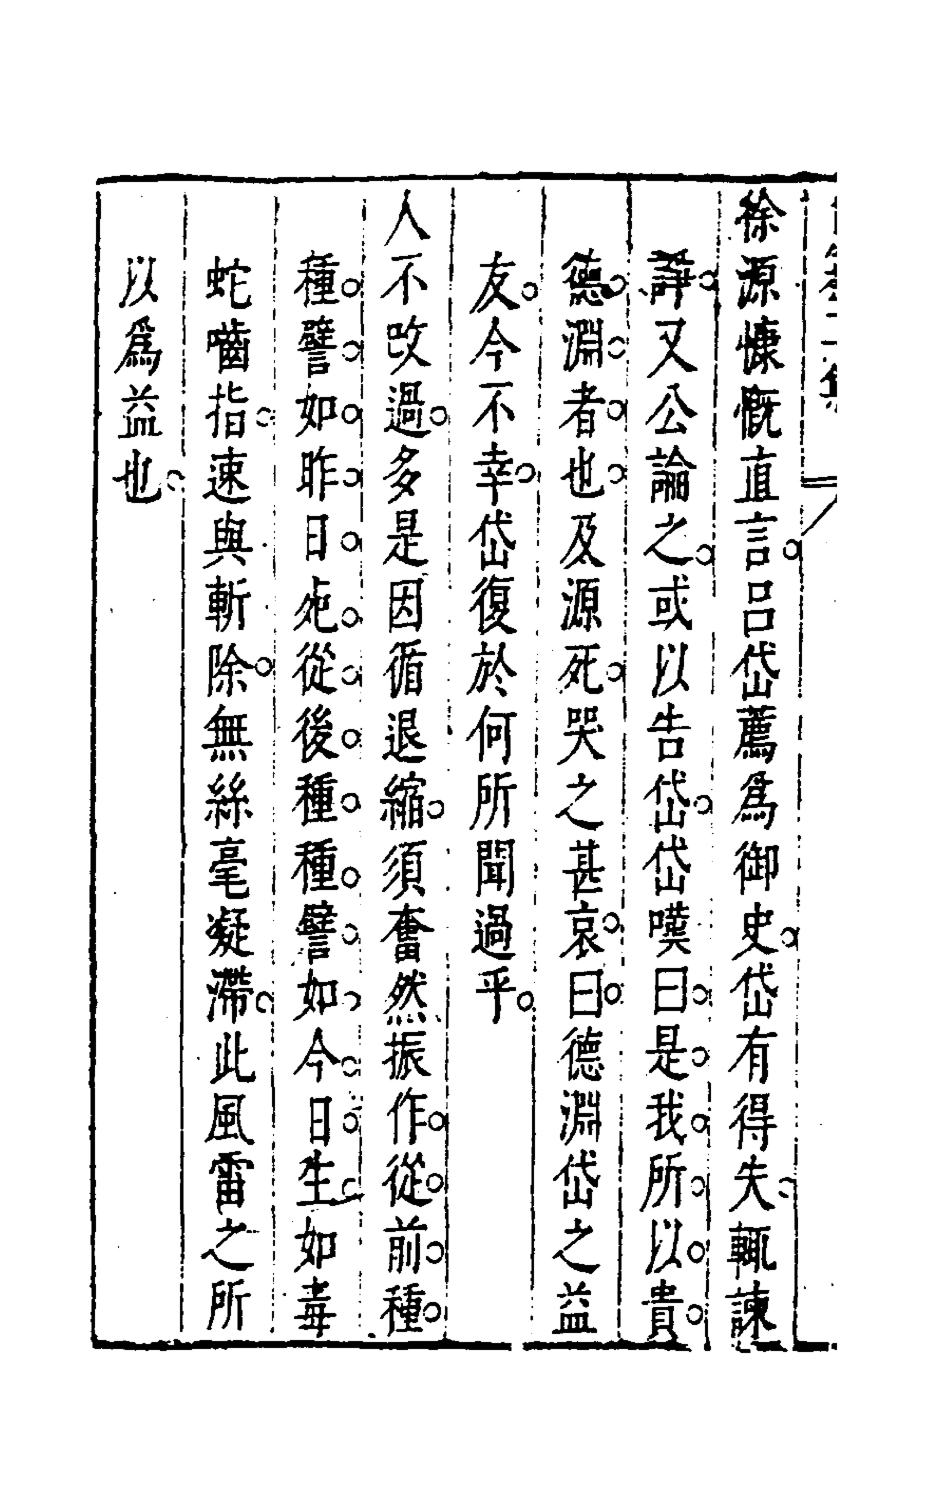 徐源慷慨直言呂岱薦爲御史岱有得失輒諫
諍又公論之或以告岱岱嘆曰是我所以貴
德淵者也及源死哭之甚哀曰德淵岱之益
友今不幸岱復於何所聞過乎
人不改過多是因循退縮須奮然振作從前種
種譬如昨日死從後種種譬如今日生如毒
蛇嚙指速與斬除無絲毫凝滯此風雷之所
以爲益也